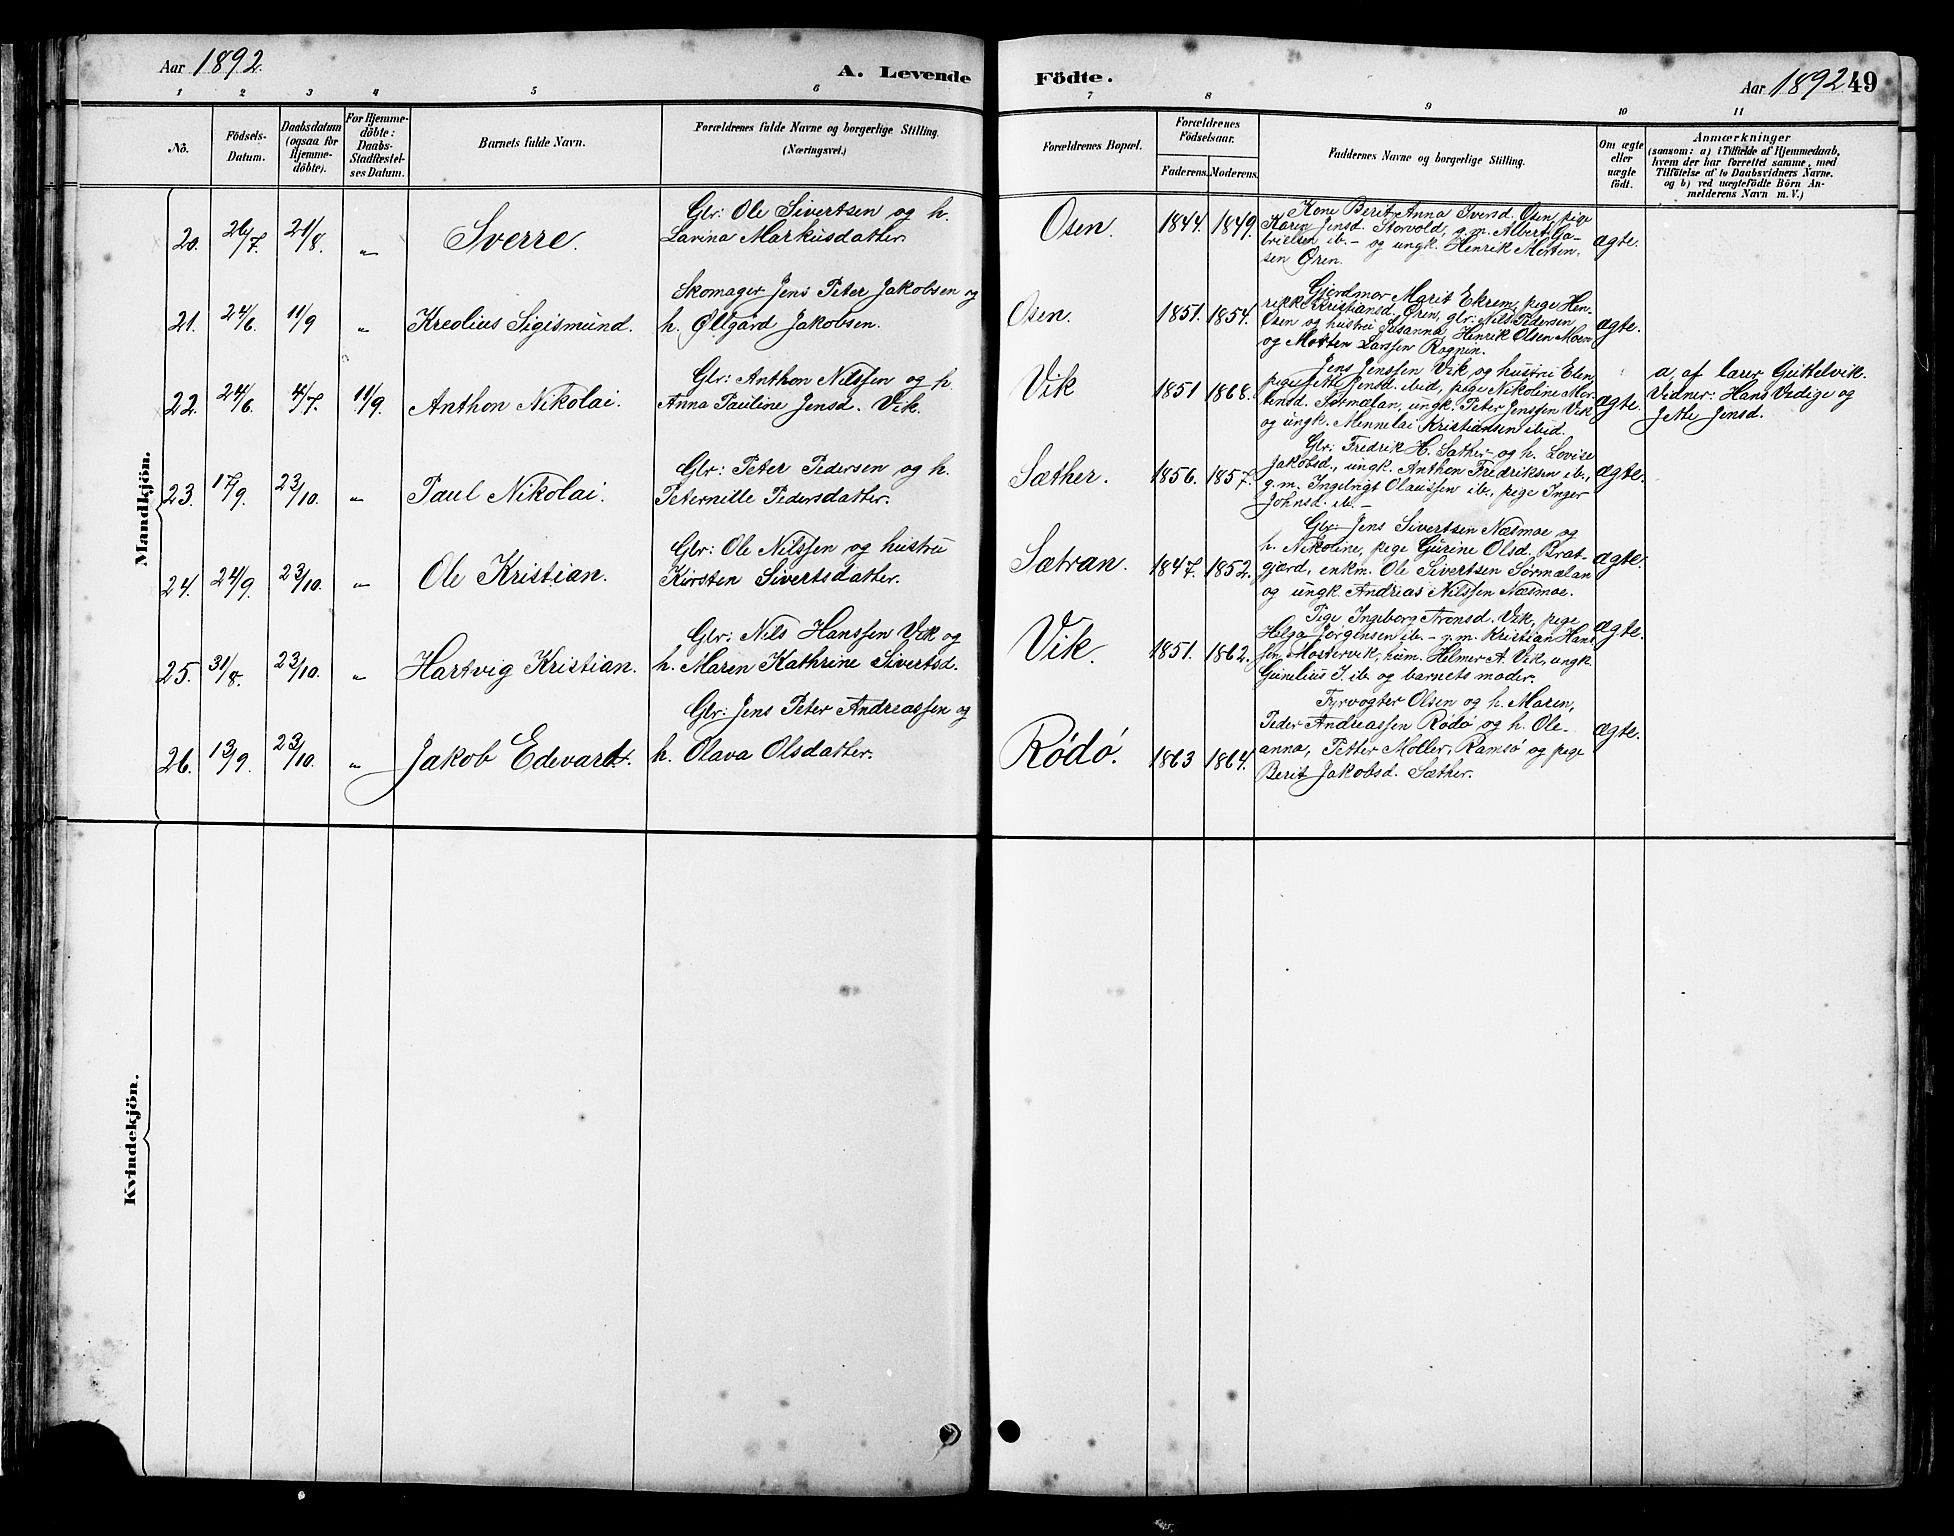 Aar 1892.
A. Levende
Födte.
Aar 1892. 49
1 2 3 4 5 6 7 8 9 10 11
No.
Födsels-
Datum.
Daabsdatum
(ogsaa for
Hjemme-
döbte).
For Hjemme-
döbte:
Daabs-
Stadfæstel-
ses Datum.
Barnets fulde Navn.
Forældrenes fulde Navne og borgerlige Stilling.
(Næringsvei.)
Forældrenes Bopæl.
Forældrenes
Födselsaar.
Faderens. Moderens.
Faddernes Navne og borgerlige Stilling.
Om ægte
eller
uægte
födt.
Anmærkninger
(saasom: a) i Tilfælde af Hjemmedaab,
hvem der har forrettet samme, med
Tilföielse af to Daabsvidners Navne.
og b) ved uægtefödte Börn An-
melderens Navn m. V.)
Mandkjön.
20. 26/7. 21/8. „ Sverre.
Glr: Ole Sivertsen og h.
Lavina Markusdatter.
Osen. 1844. 1849.
Kone Berit Anna Iversd. Osen, pige
Karen Jensd. Storvold, g.m. Albert Ga-
brielsen ib. – og ungk. Henrik Morten-
sen Øren.
ægte.
21. 24/6. 11/9 „ Kreolius Sigismund.
Skomager Jens Peter Jakobsen og
h. Øllgård Jakobsen.
Osen. 1851. 1854.
Gjordmor Marit Ekrem, pige Hen-
rikke Kristiansd. Øren, glr: Nils Pedersen
Osen og hustru Susanna, Henrik Olsen Moen
og Morten Larssen
ægte.
22. 24/6. 4/7. 11/9. Anthon Nikolai.
Glr: Anthon Nilssen og h.
Anna Pauline Jensd. Vik.
Vik 1851 1868.
Jens Jenssen Vik og hustru Elen,
pige Jette Jensd. ibid, pige Nikoline Mor-
tensd. Sørmælan, ungk. Peter Jenssen Vik
og ungk. Mennelai Kristiansen ibid.
ægte.
a, af lærer Geittelvik.
Vidner: Hans Vedige og
Jette Jensd.
23. 17/9. 23/10. „ Paul Nikolai.
Glr: Peter Pedersen og h.
Peternelle Pedersdatter.
Sæther. 1856. 1857.
Glr: Fredrik H. Sæther og h. Lovise
Jakobsd., ungk. Anthon Fredriksen ib.,
g.m. Ingebrigt Olaussen ib., pige Inger
Johnsd. ib. –
ægte.
24. 24/9. 23/10. „ Ole Kristian.
Glr: Ole Nilssen og hustru
Kirsten Sivertsdatter.
Sætran. 1847. 1852.
Glr: Jens Sivertsen Næsmoe og
h. Nikoline, pige Gurine Olsd. Brat-
gjærd, enkm. Ole Sivertsen Sørmælan
og ungk. Andreas Nilssen Næsmoe.
ægte.
25. 31/8. 23/10. „ Hartvig Kristian.
Glr: Nils Hanssen Vik og
h. Maren Kathrine Sivertsd.
Vik. 1851. 1862.
Pige Ingeborg Aronsd. Vik, pige
Helga Jørgensen ib. – g.m. Kristian Hans-
sen Mostervik, husm. Helmer A. Vik, ungk.
Gunelius J. ib. og barnets moder.
ægte.
26. 13/9. 23/10. „ Jakob Edevard.
Glr: Jens Peter Andreassen og
h. Olava Olsdatter.
Rødø. 1863 1864.
Fyrvogter Olsen og h. Maren,
Peder Andreassen Rødø og h. Ole-
anna, Petter Møller, Ramsø og pige
Berit Jakobsd. Sæther.
ægte.
Kvindekjön.